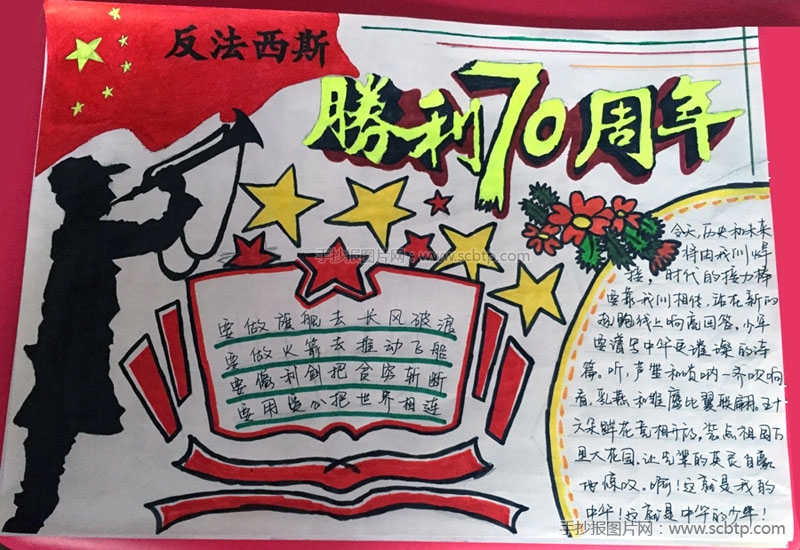 反法西斯
勝利70周年
手抄报图片网:www.scbtp.com
要做旗舰去长风破浪
要做火箭去推动飞船
要像利剑把贪穷斩断
要用爱心把世界相连
今天,历史和未来
将由我们焊
接,时代的接力棒
要靠我们相传,站在新的
起跑线上响亮回答,少年
要谱写中华更璀璨的诗
篇。听,芦笙和唢呐一齐吹响
看,乳燕和雏鹰比翼联翩,五十
六朵鲜花竞相开放,装点祖国万
里大花园,让先辈的英灵自豪
地慨叹。啊!这就是我的
中华!这就是中华的少年!
手抄报图片网:www.scbtp.com